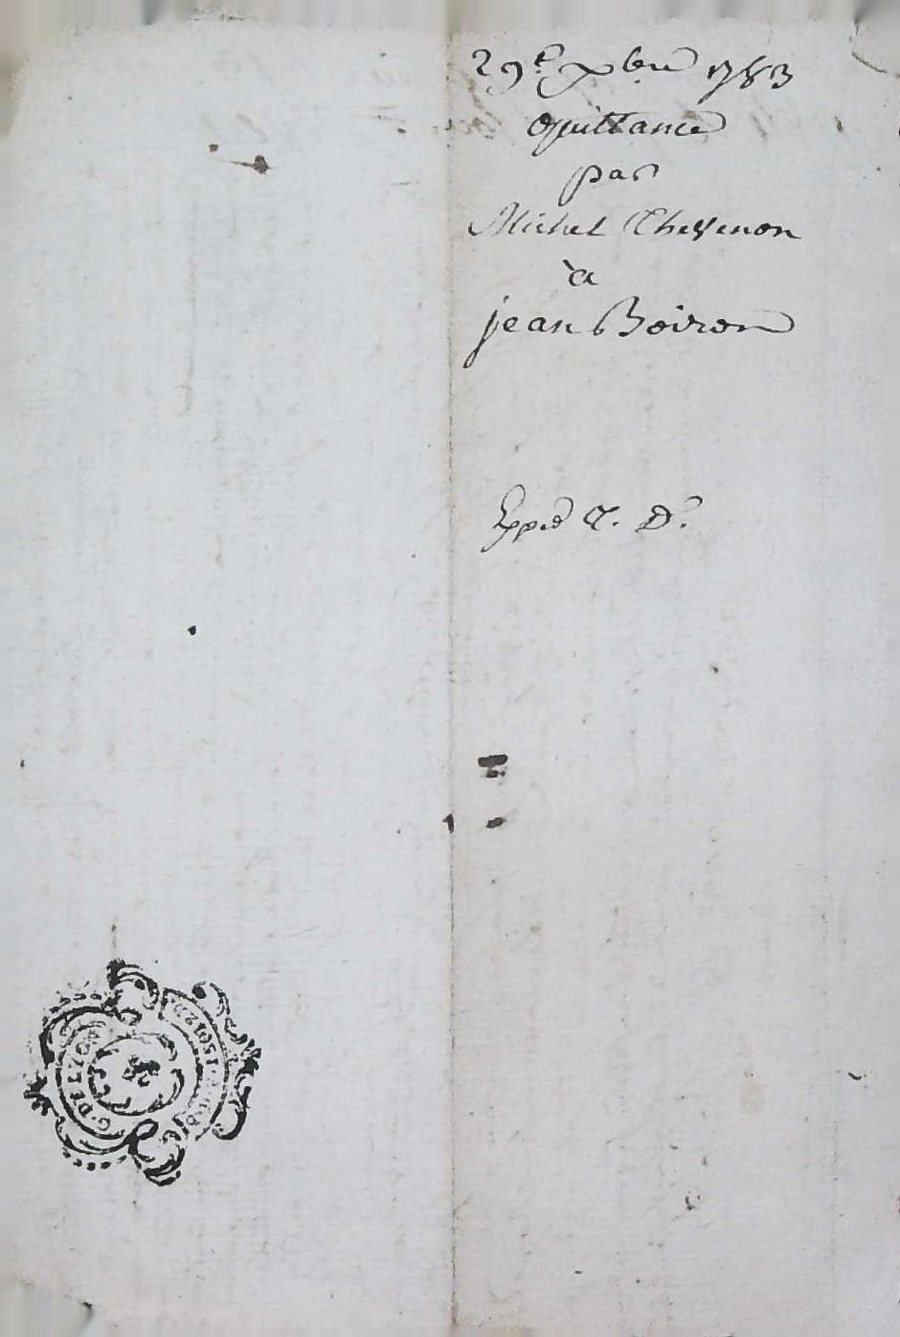 29e xbre 1783
Quittance
par
Michel Thevenon
à
jean Boiron
Exped
G. DE LYON